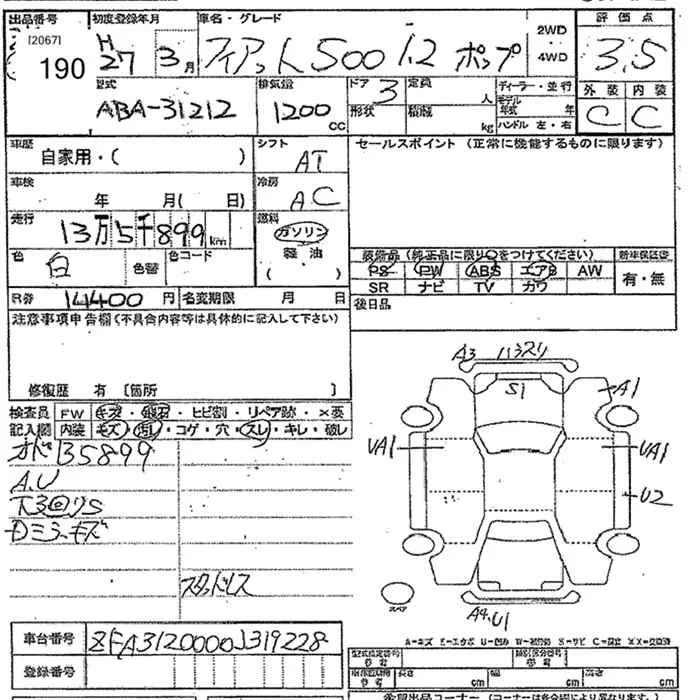 出品番号 初度登録年月 車名・グレード 2WD 評価点
[2067] H 27 3月 フィアット500 1.2 ポップ 4WD 3.5
190
型式 排気量 ドア 3 定員 人 ディーラー・並行 外装 内装
ABA-31212 1200 CC 形状 積載 kg モデル年式 年 C C
ハンドル 左・右
車歴 シフト セールスポイント (正常に機能するものに限ります)
自家用・( ) AT
車検 冷房
年 月( 日) AC
走行 燃料
13万5千899km ガソリン
色 色替 色コード 軽油 装備品(純正品に限り○をつけてください) 新車保証書
白 ( ) PS PW ABS エアB AW 有・無
SR ナビ TV カワ
R券 14400円 名変期限 月 日 後日品
注意事項申告欄(不具合内容等は具体的に記入して下さい)
修復歴 有 [箇所 ]
検査員 FW キズ・飛石・ヒビ割・リペア跡・×要
記入欄 内装 キズ・汚レ・コゲ・穴・スレ・キレ・破レ
オド135899
A.U
キズ
スタッドレス
A3
S1
A1
UA1
UA1
U2
スペア
A4.U1
A=キズ E=エクボ U=凹み W=補修跡 S=サビ C=腐食 XX=交換済
車台番号 ZFA3120000J319228
登録番号
型式指定番号 類別区分番号
参考 参考
長さ cm 幅 cm 高さ cm
希望出品コーナー (コーナーは各会場により異なります)